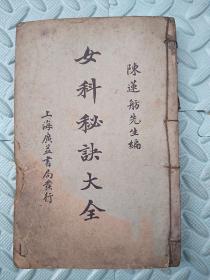 陳蓮舫先生編
女科秘訣大全
上海廣益書局發行